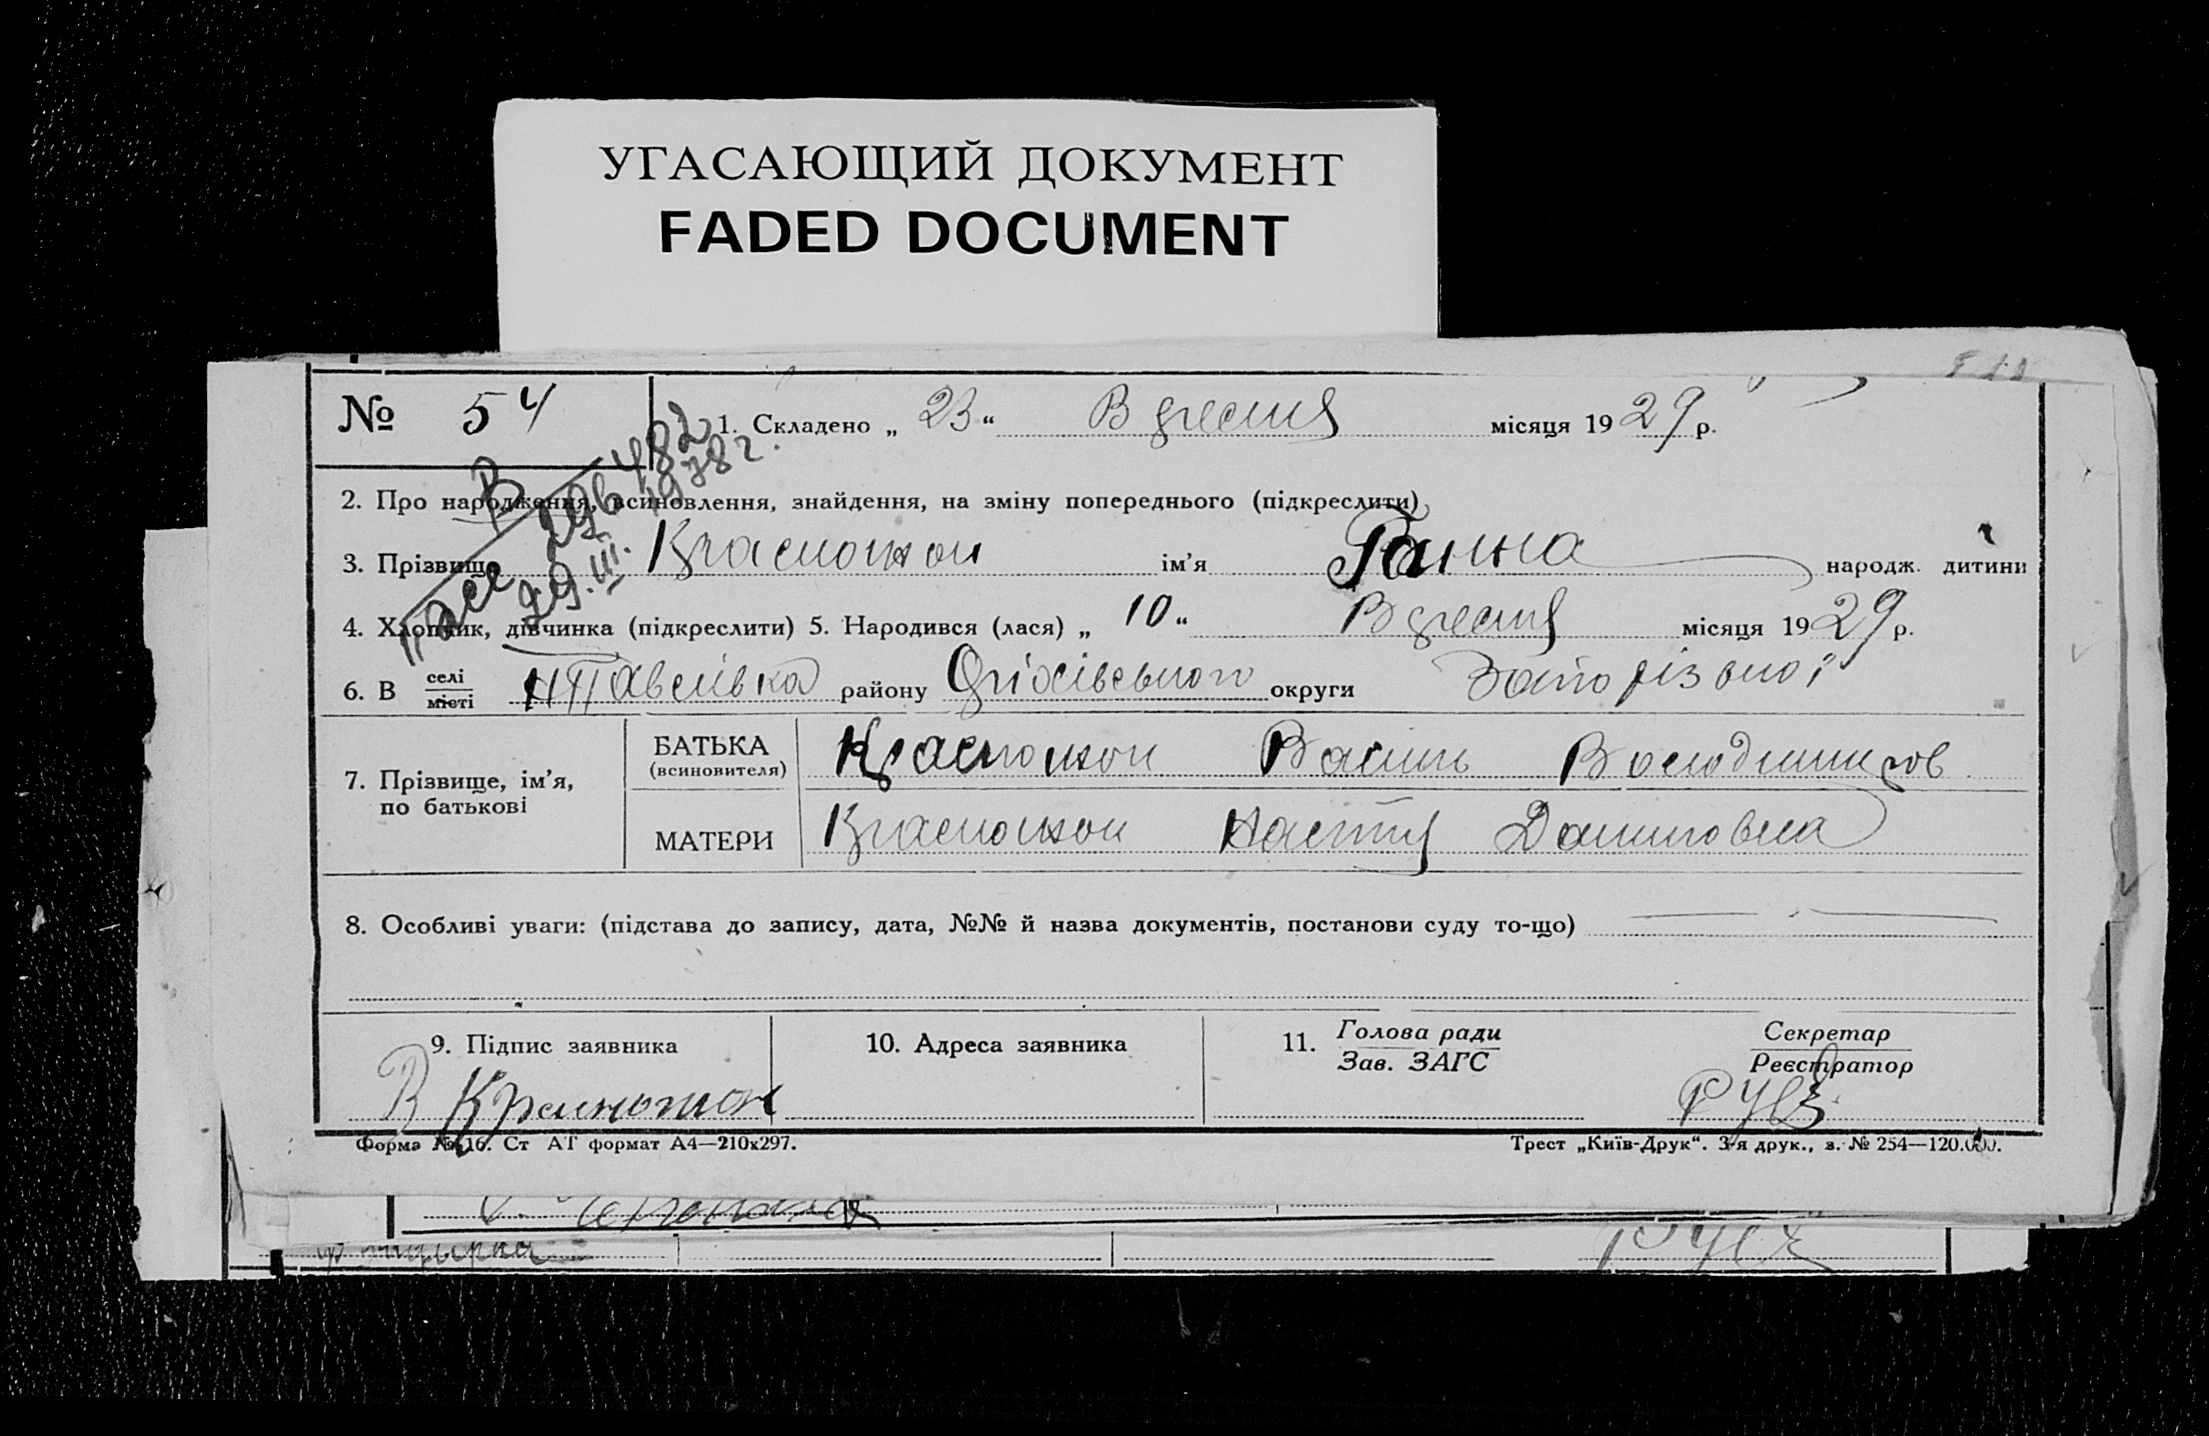 УГАСАЮЩИЙ ДОКУМЕНТ
FADED DOCUMENT
№ 54
1. Складено „ 23 “ Вересня місяця 1929 р.
2. Про народження, всиновлення, знайдення, на зміну попереднього (підкреслити)
3. Прізвище Красножон ім’я Ганна народж. дитини
4. Хлопчик, дівчинка (підкреслити) 5. Народився (лася) „ 10 “ Вересня місяця 1929 р.
6. В селі місті Н Павлівка району Оріхівського округи Запорізької
7. Прізвище, ім’я, по батькові
БАТЬКА (всиновителя) Красножон Василь Володимиров
МАТЕРИ Красножон Настя Даниловна
8. Особливі уваги: (підстава до запису, дата, №№ й назва документів, постанови суду то-що)
9. Підпис заявника
10. Адреса заявника
11. Голова ради Зав. ЗАГС
Секретар Реєстратор
В Красножон
Форма № 16. Ст АТ формат А4—210х297.
Трест „Київ-Друк“. 3-я друк., з. № 254—120.000.